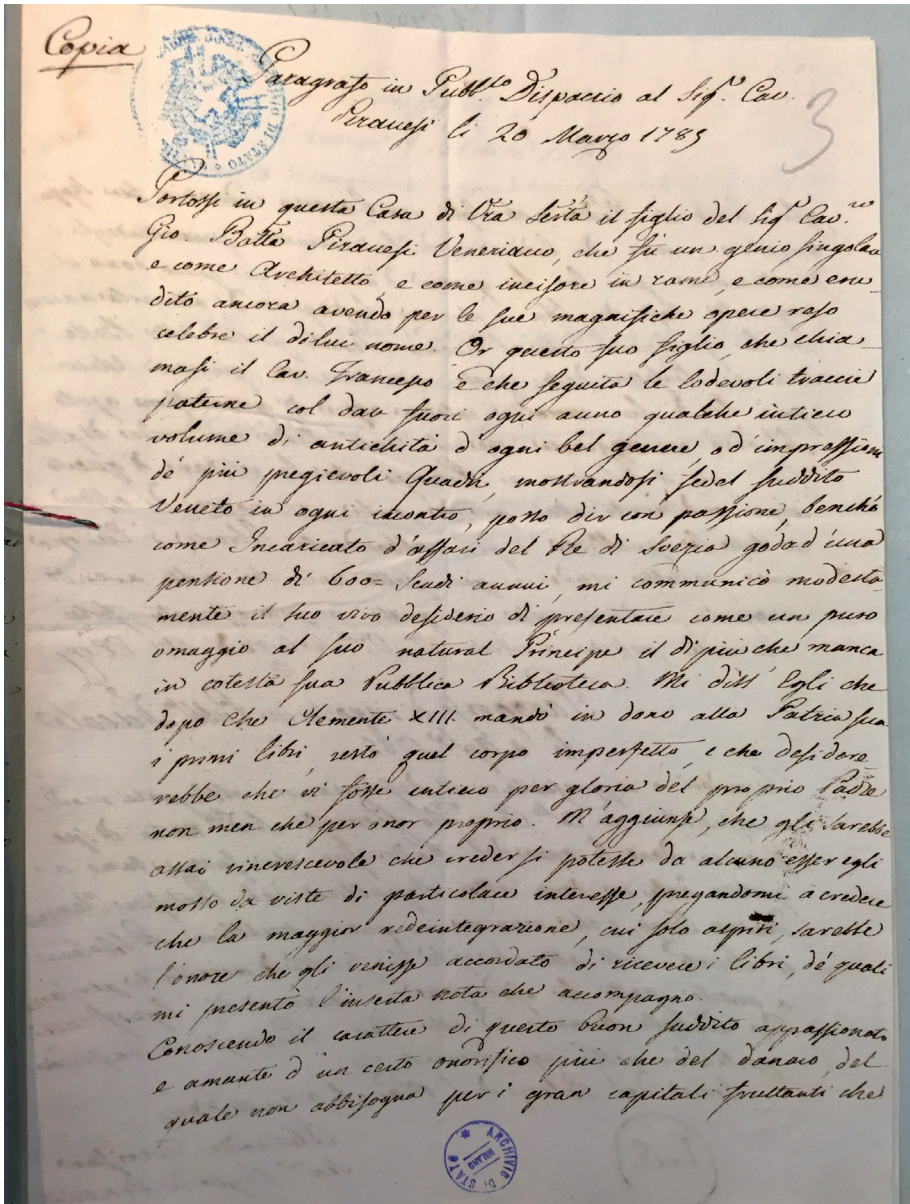 Copia
Paragrafo in Pubb.co Dispaccio al Sig.r Cav.
Piranesi li 20 Marzo 1785
3
Portossi in questa Casa di Vra Serta il figlio del Sig.r Cav.re
Gio. Batta Piranesi Veneziano, che fù un genio singolare
e come Architetto, e come incisore in rame, e come eru-
dito ancora avendo per le sue magnifiche opere reso
celebre il dilui nome. Or questo suo figlio, che chia-
masi il Cav. Francesco e che seguita le lodevoli traccie
paterne col dar fuori ogni anno qualche intiero
volume di antichità d'ogni bel genere, o d'impressioni
de' più pregievoli Quadri, mostrandosi fedel suddito
Veneto in ogni incontro, posso dir con passione, benchè
come Incaricato d'affari del Re di Svezia goda d'una
pensione di 600= Scudi annui, mi communicò modesta-
mente il suo vivo desiderio di presentare come un puro
omaggio al suo natural Principe il di più che manca
in cotesta sua Pubblica Biblioteca. Mi diss' Egli che
dopo che Clemente XIII. mandò in dono alla Patria sua
i primi libri, restò quel corpo imperfetto, e che desidere
rebbe che vi fosse intiero per gloria del proprio Padre
non men che per onor proprio. M'aggiunse, che gli sarebbe
assai rincrescevole che creder si potesse da alcuno esser egli
mosso da viste di particolare interesse, pregandomi a credere
che la maggior redeintegrazione, cui solo aspiri, sarebbe
l'onore che gli venisse accordato di ricevere i libri, de' quali
mi presentò l'inserta nota che accompagno.
Conoscendo il carattere di questo buon suddito appassionato
e amante d'un certo onorifico più che del danaro, del
quale non abbisogna per i gran capitali fruttanti che
ARCHIVIO DI STATO
MILANO